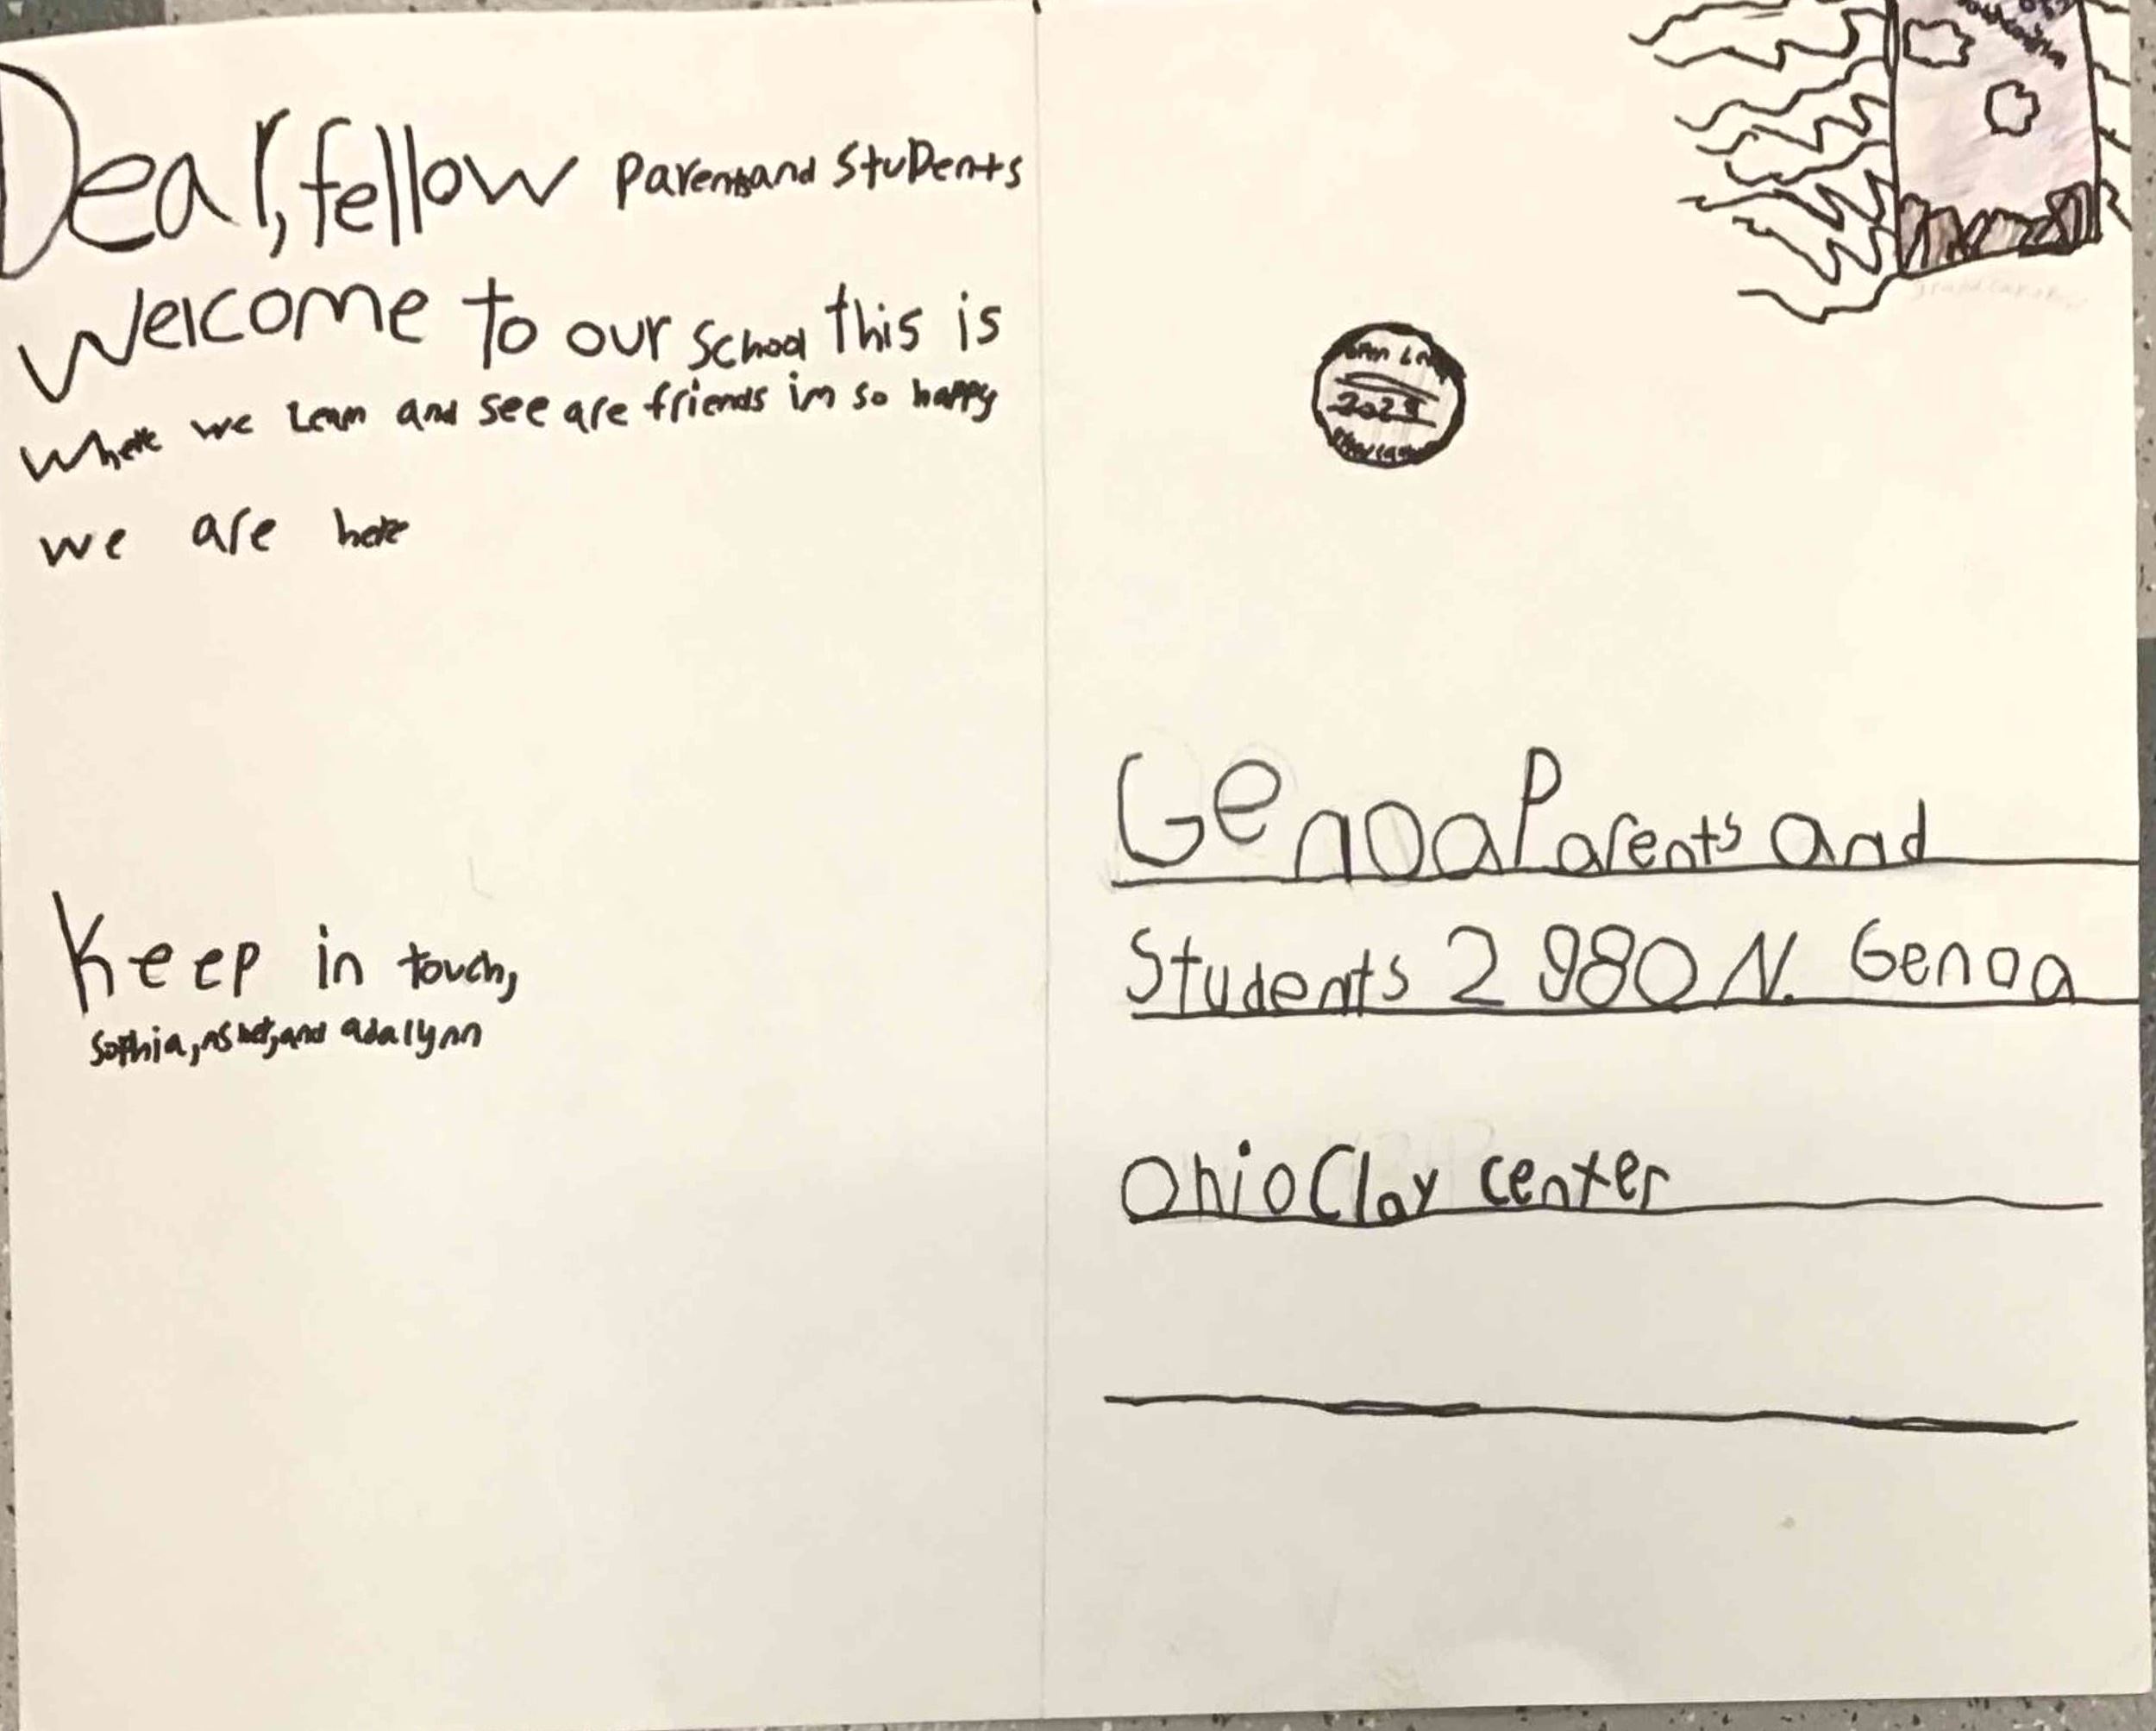 Dear, fellow Parents and StuDents
Welcome to our School this is
Where we Learn and see are friends im so happy
we are here
Keep in touch,
Sophia, and adalynn
2023
Genoa Parents and
Students 2980 N. Genoa
Ohio Clay center